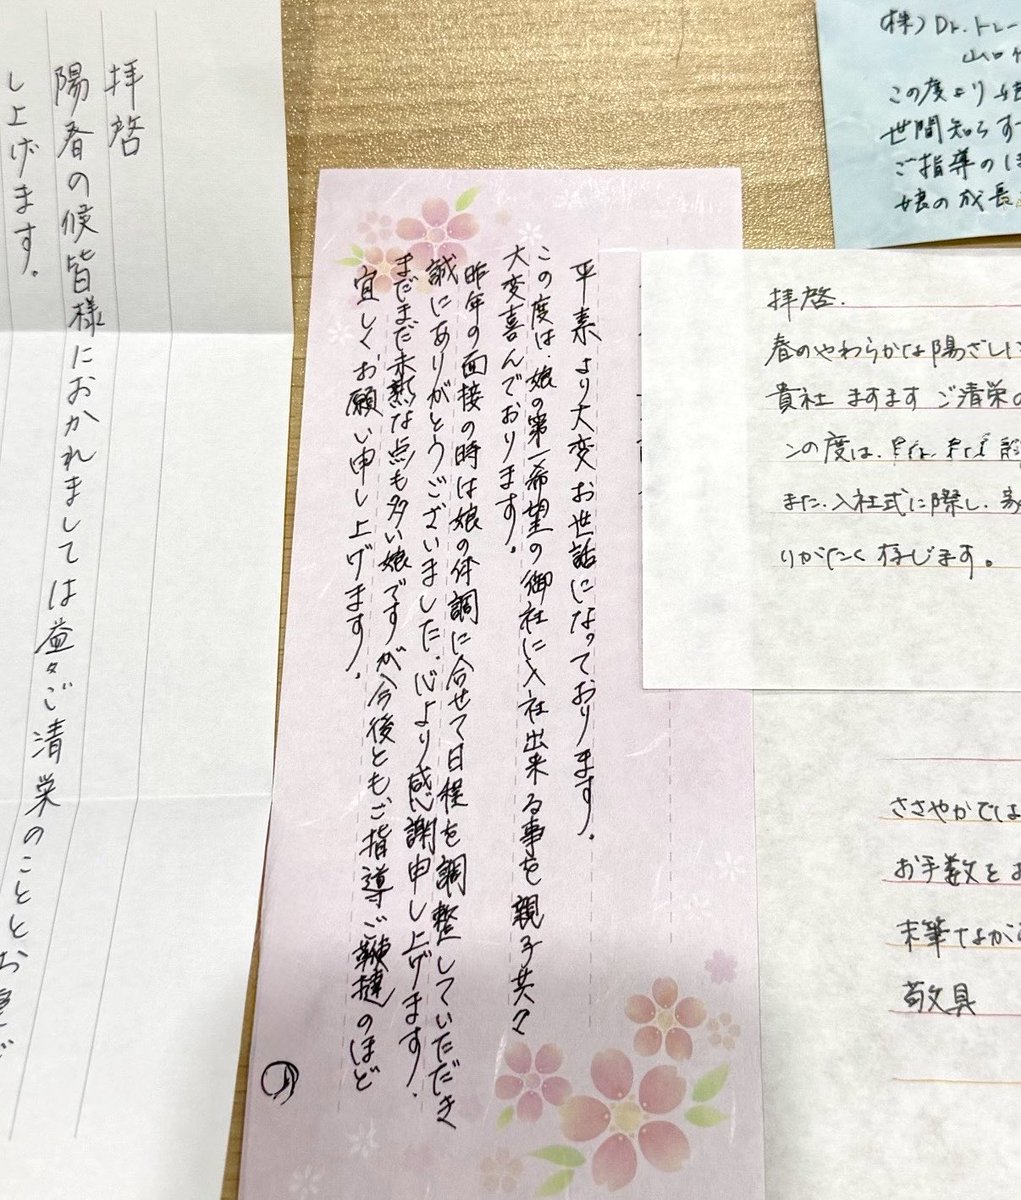 拝啓
陽春の候皆様におかれましては益々ご清栄のこととお
し上げます。
平素より大変お世話になっております。
この度は、娘の第一希望の御社に入社出来る事を親子共々
大変喜んでおります。
昨年の面接の時は娘の体調に合せて日程を調整していただき
誠にありがとうございました。心より感謝申し上げます。
まだまだ未熟な点も多い娘ですが今後ともご指導ご鞭撻のほど
宜しくお願い申し上げます。
(株)Dr.トレー
山口
この度より娘
世間知らず
ご指導のほ
娘の成長
拝啓.
春のやわらかな陽ざしに
貴社 ますます ご清栄の
この度は、
また、入社式に際し、
りがたく存じます。
ささやかでは
お手数をお
末筆ながら
敬具